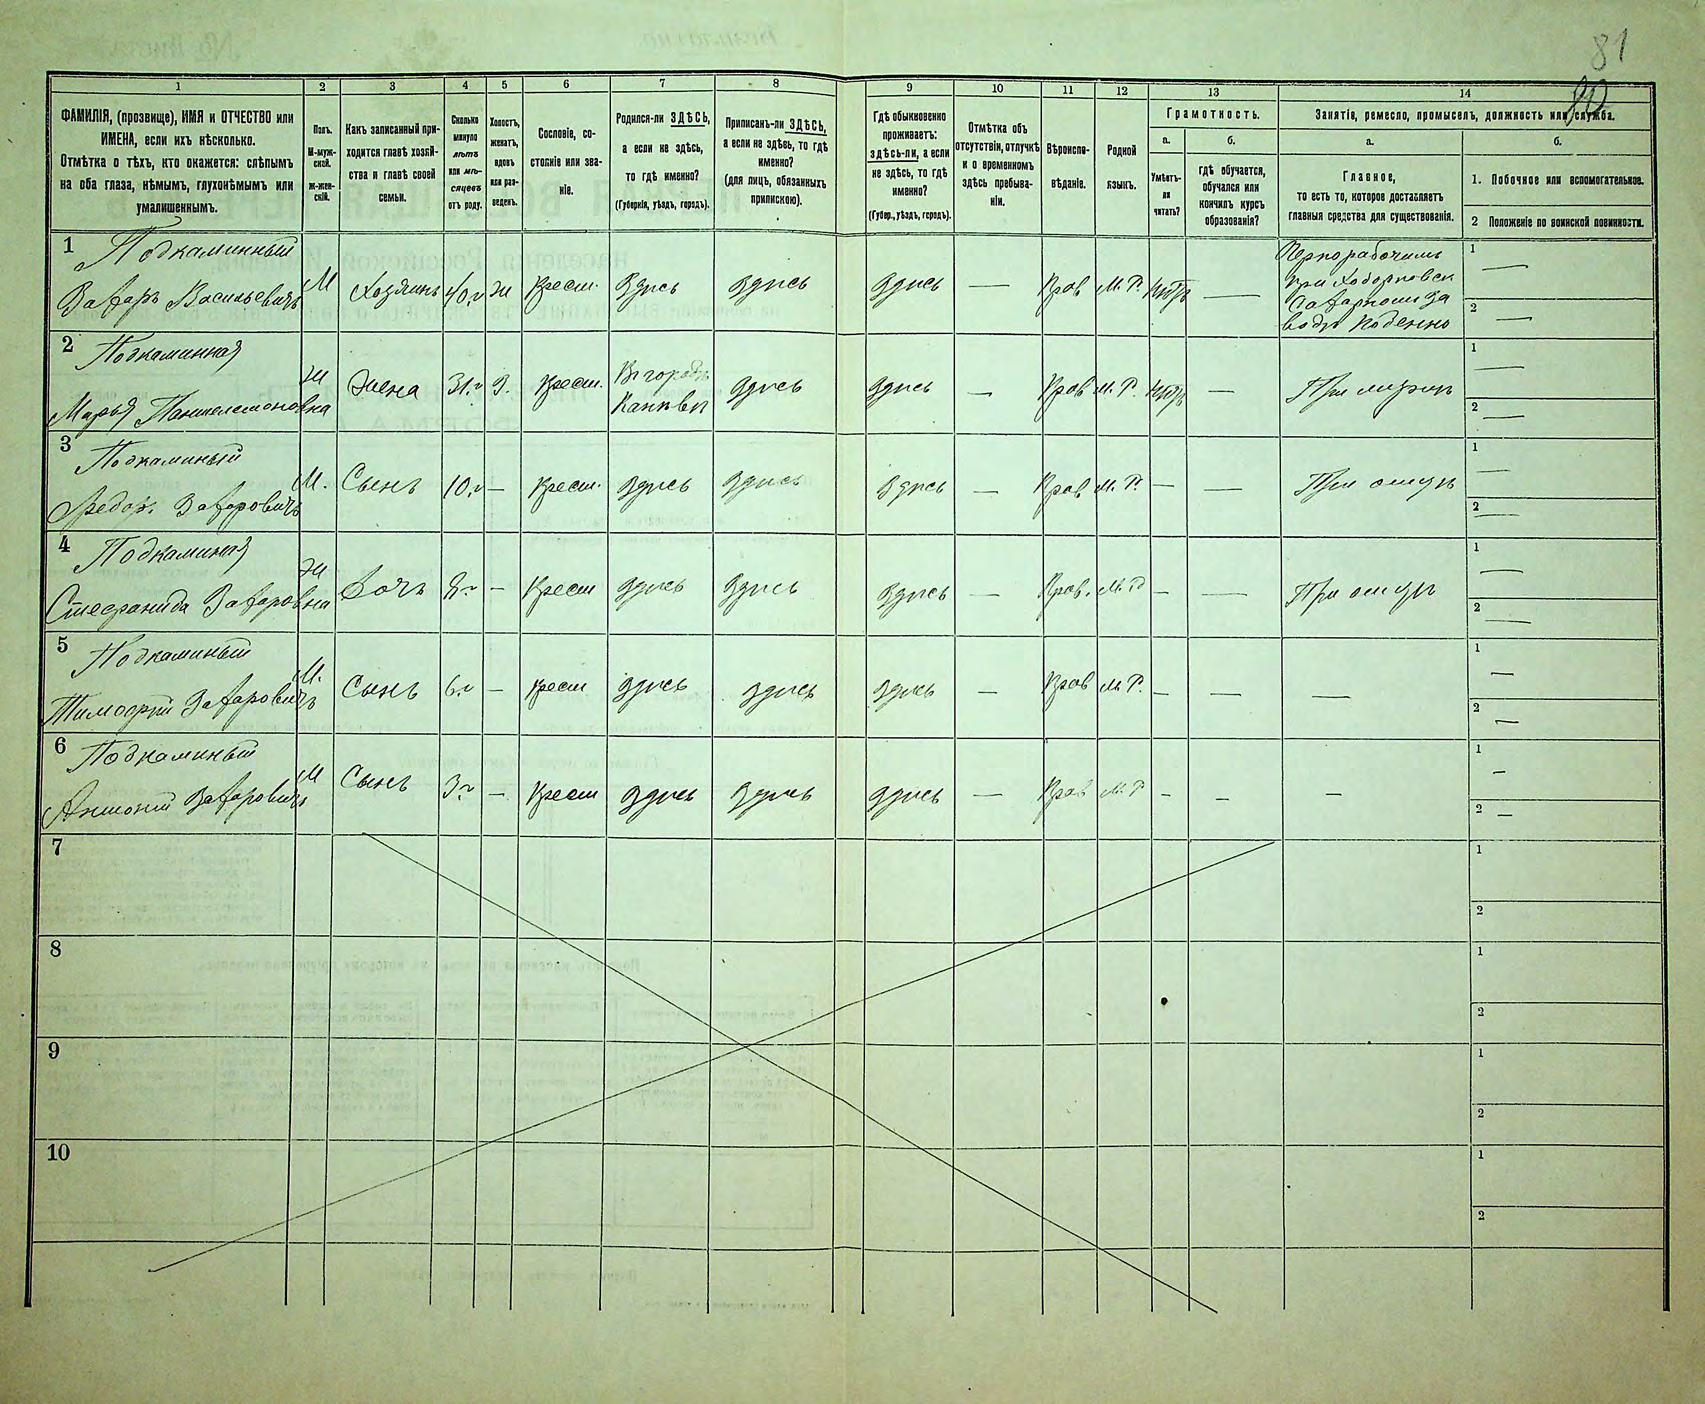 81
1
2
3
4
5
6
7
8
9
10
11
12
13
14
ФАМИЛІЯ, (прозвище), ИМЯ и ОТЧЕСТВО или
ИМЕНА, если ихъ нѣсколько.
Отмѣтка о тѣхъ, кто окажется: слѣпымъ
на оба глаза, нѣмымъ, глухонѣмымъ или
умалишеннымъ.
Полъ.
М-муж-
ской.
Ж-жен-
скій.
Какъ записанный при-
ходится главѣ хозяй-
ства и главѣ своей
семьи.
Сколько
минуло
лѣтъ
или мѣ-
сяцевъ
отъ роду.
Холостъ,
женатъ,
вдовъ
или раз-
веденъ.
Сословіе, со-
стояніе или зва-
ніе.
Родился-ли ЗДѢСЬ,
а если не здѣсь,
то гдѣ именно?
(Губернія, уѣздъ, городъ).
Приписанъ-ли ЗДѢСЬ,
а если не здѣсь, то гдѣ
именно?
(для лицъ, обязанныхъ
припискою).
Гдѣ обыкновенно
проживаетъ:
здѣсь-ли, а если
не здѣсь, то гдѣ
именно?
(Губер., уѣздъ, городъ).
Отмѣтка объ
отсутствіи, отлучкѣ
и о временномъ
здѣсь пребыва-
ніи.
Вѣроиспо-
вѣданіе.
Родной
языкъ.
Грамотность.
а.
Умѣетъ-
ли
читать?
б.
Гдѣ обучается,
обучался или
кончилъ курсъ
образованія?
Занятіе, ремесло, промыселъ, должность или служба.
а.
Главное,
то есть то, которое доставляетъ
главныя средства для существованія.
б.
1. Побочное или вспомогательное.
2 Положеніе по воинской повинности.
1 Подкаминный
Захаръ Васильевичъ
М Хозяинъ 40 г ж Крест. Здѣсь Здѣсь Здѣсь — Прав М. Р. нѣтъ —
Чернорабочимъ
при
Сахарномъ за
водѣ
1 —
2 —
2 Подкаминная
Марья Пантелемоновна
Ж Жена 31. г З. Крест.
Въ городѣ
Каневѣ
Здѣсь Здѣсь — Прав М. Р. нѣтъ — При мужѣ
1 —
2 —
3 Подкаминый
Федоръ Захаровичъ
М. Сынъ 10. г — Крест. Здѣсь Здѣсь Здѣсь — Прав М. Р. — — При отцѣ
1 —
2 —
4 Подкаминая
Стефанида Захаровна
Ж Дочь 8 г — Крест Здѣсь Здѣсь Здѣсь — Прав. М. Р — — При отцѣ
1 —
2 —
5 Подкаминый
Тимофей Захаровичъ
М. Сынъ 6. г — Крест Здѣсь Здѣсь Здѣсь — Прав М. Р. — — —
1 —
2 —
6 Подкаминый
Антоній Захаровичъ
М Сынъ 3 г — Крест Здѣсь Здѣсь Здѣсь — Прав М. Р — — —
1 —
2 —
7
1
2
8
1
2
9
1
2
10
1
2